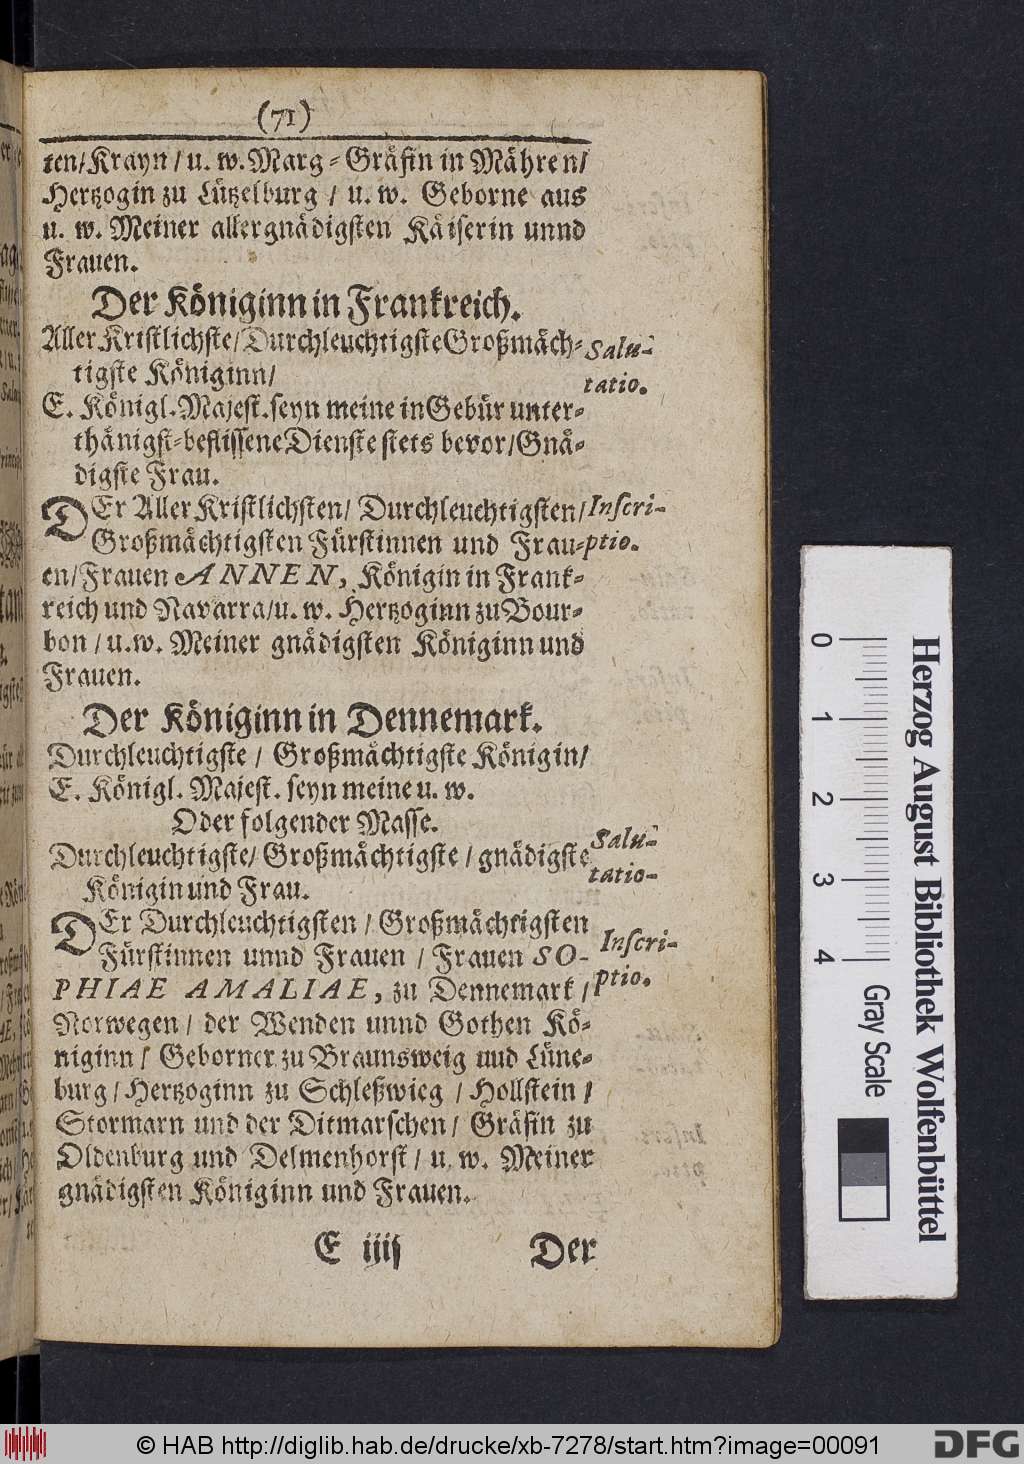 (71)
ten/Krayn/u. w. Marg-Gräfin in Mähren/
Hertzogin zu Lützelburg / u. w. Geborne aus
u. w. Meiner allergnädigsten Käiserin unnd
Frauen.
Der Königinn in Frankreich.
Aller Kristlichste/Durchleuchtigste Großmäch-
tigste Königinn/
Salu-
tatio.
E. Königl. Majest. seyn meine in Gebür unter-
thänigst-beflissene Dienste stets bevor/Gnä-
digste Frau.
DEr Aller Kristlichsten/ Durchleuchtigsten/
Großmächtigsten Fürstinnen und Frau-
Inscri-
ptio.
en/Frauen ANNEN, Königin in Frank-
reich und Navarra/u. w. Hertzoginn zu Bour-
bon / u.w. Meiner gnädigsten Königinn und
Frauen.
Der Königinn in Dennemark.
Durchleuchtigste / Großmächtigste Königin/
E. Königl. Majest. seyn meine u. w.
Oder folgender Masse.
Durchleuchtigste/ Großmächtigste / gnädigste
Königin und Frau.
Salu-
tatio-
DEr Durchleuchtigsten / Großmächtigsten
Fürstinnen unnd Frauen / Frauen SO-
Inscri-
ptio.
PHIAE AMALIAE, zu Dennemark /
Norwegen / der Wenden unnd Gothen Kö-
niginn / Geborner zu Braunsweig und Lüne-
burg / Hertzoginn zu Schleßwieg / Hollstein /
Stormarn und der Ditmarschen / Gräfin zu
Oldenburg und Delmenhorst / u. w. Meiner
gnädigsten Königinn und Frauen.
E iiij Der
Herzog August Bibliothek Wolfenbüttel
0 1 2 3 4 Gray Scale
© HAB http://diglib.hab.de/drucke/xb-7278/start.htm?image=00091
DFG